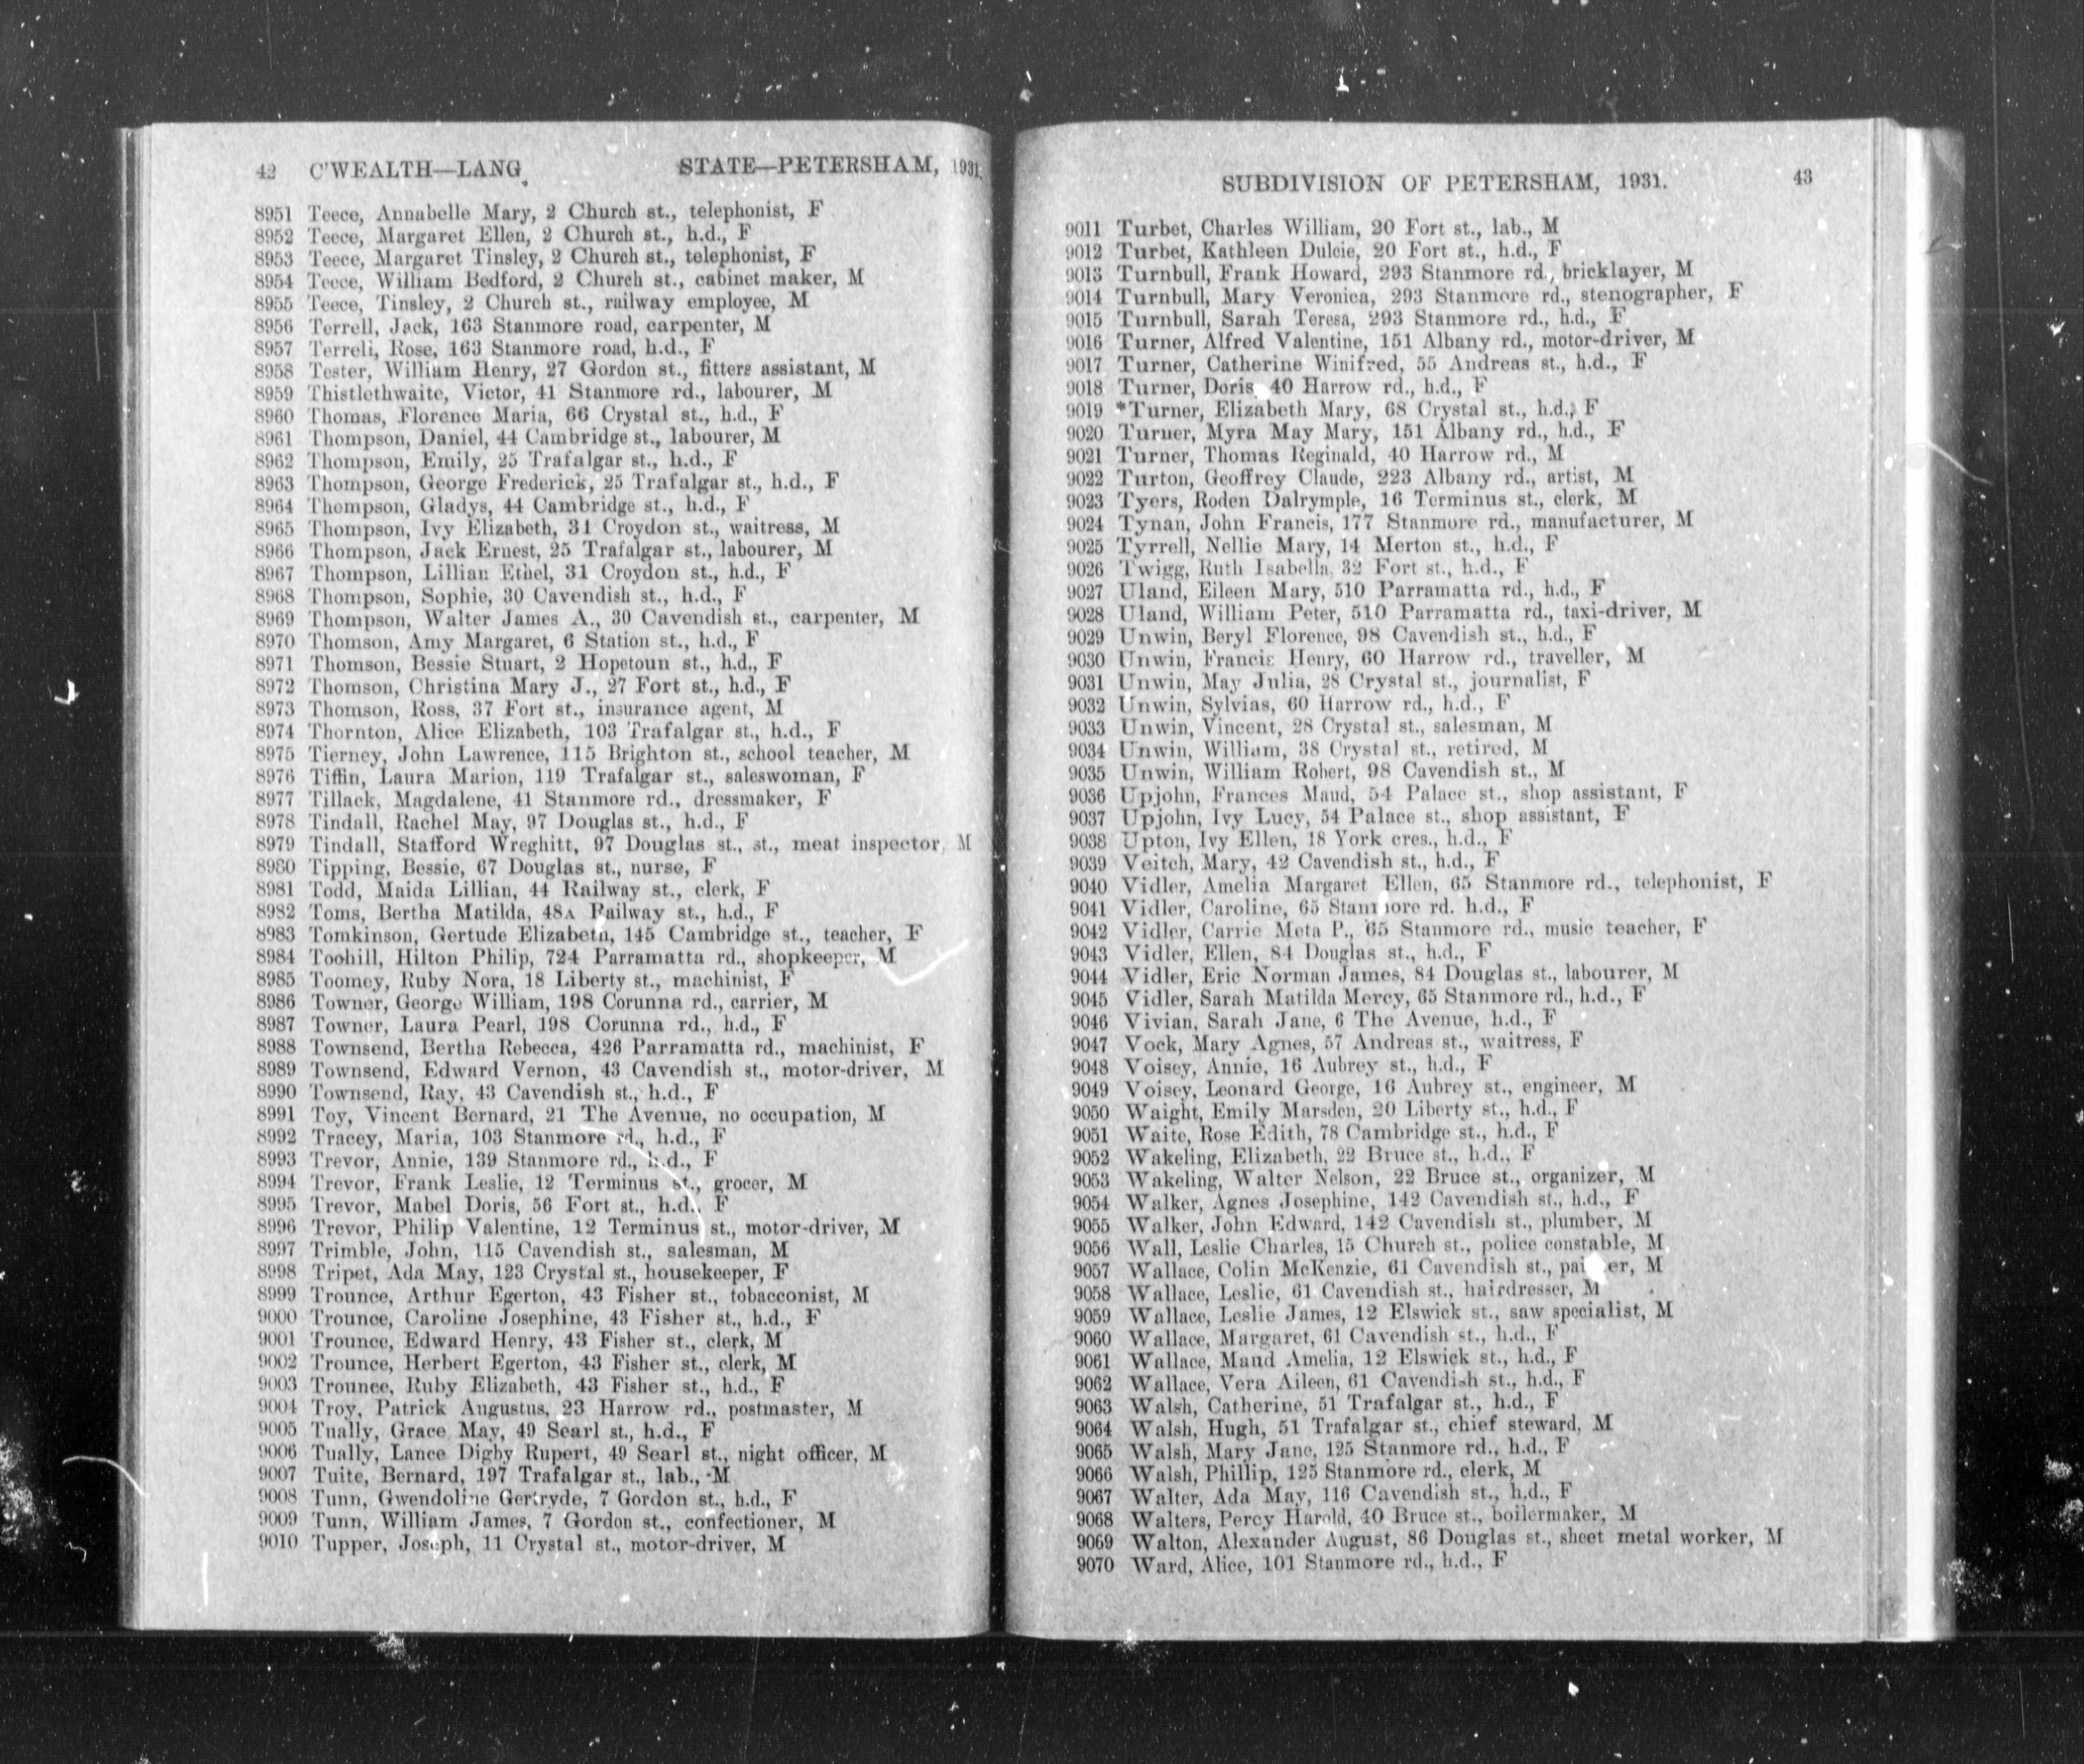 42 C'WEALTH—LANG STATE—PETERSHAM, 1931.
8951 Teece, Annabelle Mary, 2 Church st., telephonist, F
8952 Teece, Margaret Ellen, 2 Church st., h.d., F
8953 Teece, Margaret Tinsley, 2 Church st., telephonist, F
8954 Teece, William Bedford, 2 Church st., cabinet maker, M
8955 Teece, Tinsley, 2 Church st., railway employee, M
8956 Terrell, Jack, 163 Stanmore road, carpenter, M
8957 Terrell, Rose, 163 Stanmore road, h.d., F
8958 Tester, William Henry, 27 Gordon st., fitters assistant, M
8959 Thistlethwaite, Victor, 41 Stanmore rd., labourer, M
8960 Thomas, Florence Maria, 66 Crystal st., h.d., F
8961 Thompson, Daniel, 44 Cambridge st., labourer, M
8962 Thompson, Emily, 25 Trafalgar st., h.d., F
8963 Thompson, George Frederick, 25 Trafalgar st., h.d., F
8964 Thompson, Gladys, 44 Cambridge st., h.d., F
8965 Thompson, Ivy Elizabeth, 31 Croydon st., waitress, M
8966 Thompson, Jack Ernest, 25 Trafalgar st., labourer, M
8967 Thompson, Lillian Ethel, 31 Croydon st., h.d., F
8968 Thompson, Sophie, 30 Cavendish st., h.d., F
8969 Thompson, Walter James A., 30 Cavendish st., carpenter, M
8970 Thomson, Amy Margaret, 6 Station st., h.d., F
8971 Thomson, Bessie Stuart, 2 Hopetoun st., h.d., F
8972 Thomson, Christina Mary J., 27 Fort st., h.d., F
8973 Thomson, Ross, 37 Fort st., insurance agent, M
8974 Thornton, Alice Elizabeth, 103 Trafalgar st., h.d., F
8975 Tierney, John Lawrence, 115 Brighton st., school teacher, M
8976 Tiffin, Laura Marion, 119 Trafalgar st., saleswoman, F
8977 Tillack, Magdalene, 41 Stanmore rd., dressmaker, F
8978 Tindall, Rachel May, 97 Douglas st., h.d., F
8979 Tindall, Stafford Wreghitt, 97 Douglas st., st., meat inspector, M
8980 Tipping, Bessie, 67 Douglas st., nurse, F
8981 Todd, Maida Lillian, 44 Railway st., clerk, F
8982 Toms, Bertha Matilda, 48A Railway st., h.d., F
8983 Tomkinson, Gertude Elizabeth, 145 Cambridge st., teacher, F
8984 Toohill, Hilton Philip, 724 Parramatta rd., shopkeeper, M
8985 Toomey, Ruby Nora, 18 Liberty st., machinist, F
8986 Towner, George William, 198 Corunna rd., carrier, M
8987 Towner, Laura Pearl, 198 Corunna rd., h.d., F
8988 Townsend, Bertha Rebecca, 426 Parramatta rd., machinist, F
8989 Townsend, Edward Vernon, 43 Cavendish st., motor-driver, M
8990 Townsend, Ray, 43 Cavendish st., h.d., F
8991 Toy, Vincent Bernard, 21 The Avenue, no occupation, M
8992 Tracey, Maria, 103 Stanmore rd., h.d., F
8993 Trevor, Annie, 139 Stanmore rd., h.d., F
8994 Trevor, Frank Leslie, 12 Terminus st., grocer, M
8995 Trevor, Mabel Doris, 56 Fort st., h.d., F
8996 Trevor, Philip Valentine, 12 Terminus st., motor-driver, M
8997 Trimble, John, 115 Cavendish st., salesman, M
8998 Tripet, Ada May, 123 Crystal st., housekeeper, F
8999 Trounce, Arthur Egerton, 43 Fisher st., tobacconist, M
9000 Trounce, Caroline Josephine, 43 Fisher st., h.d., F
9001 Trounce, Edward Henry, 43 Fisher st., clerk, M
9002 Trounce, Herbert Egerton, 43 Fisher st., clerk, M
9003 Trounce, Ruby Elizabeth, 43 Fisher st., h.d., F
9004 Troy, Patrick Augustus, 23 Harrow rd., postmaster, M
9005 Tually, Grace May, 49 Searl st., h.d., F
9006 Tually, Lance Digby Rupert, 49 Searl st., night officer, M
9007 Tuite, Bernard, 197 Trafalgar st., lab., M
9008 Tunn, Gwendoline Gertryde, 7 Gordon st., h.d., F
9009 Tunn, William James, 7 Gordon st., confectioner, M
9010 Tupper, Joseph, 11 Crystal st., motor-driver, M
SUBDIVISION OF PETERSHAM, 1931. 43
9011 Turbet, Charles William, 20 Fort st., lab., M
9012 Turbet, Kathleen Dulcie, 20 Fort st., h.d., F
9013 Turnbull, Frank Howard, 293 Stanmore rd., bricklayer, M
9014 Turnbull, Mary Veronica, 293 Stanmore rd., stenographer, F
9015 Turnbull, Sarah Teresa, 293 Stanmore rd., h.d., F
9016 Turner, Alfred Valentine, 151 Albany rd., motor-driver, M
9017 Turner, Catherine Winifred, 55 Andreas st., h.d., F
9018 Turner, Doris, 40 Harrow rd., h.d., F
9019 *Turner, Elizabeth Mary, 68 Crystal st., h.d., F
9020 Turner, Myra May Mary, 151 Albany rd., h.d., F
9021 Turner, Thomas Reginald, 40 Harrow rd., M
9022 Turton, Geoffrey Claude, 223 Albany rd., artist, M
9023 Tyers, Roden Dalrymple, 16 Terminus st., clerk, M
9024 Tynan, John Francis, 177 Stanmore rd., manufacturer, M
9025 Tyrrell, Nellie Mary, 14 Merton st., h.d., F
9026 Twigg, Ruth Isabella, 32 Fort st., h.d., F
9027 Uland, Eileen Mary, 510 Parramatta rd., h.d., F
9028 Uland, William Peter, 510 Parramatta rd., taxi-driver, M
9029 Unwin, Beryl Florence, 98 Cavendish st., h.d., F
9030 Unwin, Francis Henry, 60 Harrow rd., traveller, M
9031 Unwin, May Julia, 28 Crystal st., journalist, F
9032 Unwin, Sylvias, 60 Harrow rd., h.d., F
9033 Unwin, Vincent, 28 Crystal st., salesman, M
9034 Unwin, William, 38 Crystal st., retired, M
9035 Unwin, William Robert, 98 Cavendish st., M
9036 Upjohn, Frances Maud, 54 Palace st., shop assistant, F
9037 Upjohn, Ivy Lucy, 54 Palace st., shop assistant, F
9038 Upton, Ivy Ellen, 18 York cres., h.d., F
9039 Veitch, Mary, 42 Cavendish st., h.d., F
9040 Vidler, Amelia Margaret Ellen, 65 Stanmore rd., telephonist, F
9041 Vidler, Caroline, 65 Stanmore rd. h.d., F
9042 Vidler, Carrie Meta P., 65 Stanmore rd., music teacher, F
9043 Vidler, Ellen, 84 Douglas st., h.d., F
9044 Vidler, Eric Norman James, 84 Douglas st., labourer, M
9045 Vidler, Sarah Matilda Mercy, 65 Stanmore rd., h.d., F
9046 Vivian, Sarah Jane, 6 The Avenue, h.d., F
9047 Vock, Mary Agnes, 57 Andreas st., waitress, F
9048 Voisey, Annie, 16 Aubrey st., h.d., F
9049 Voisey, Leonard George, 16 Aubrey st., engineer, M
9050 Waight, Emily Marsden, 20 Liberty st., h.d., F
9051 Waite, Rose Edith, 78 Cambridge st., h.d., F
9052 Wakeling, Elizabeth, 22 Bruce st., h.d., F
9053 Wakeling, Walter Nelson, 22 Bruce st., organizer, M
9054 Walker, Agnes Josephine, 142 Cavendish st., h.d., F
9055 Walker, John Edward, 142 Cavendish st., plumber, M
9056 Wall, Leslie Charles, 15 Church st., police constable, M
9057 Wallace, Colin McKenzie, 61 Cavendish st., M
9058 Wallace, Leslie, 61 Cavendish st., hairdresser, M
9059 Wallace, Leslie James, 12 Elswick st., saw specialist, M
9060 Wallace, Margaret, 61 Cavendish st., h.d., F
9061 Wallace, Maud Amelia, 12 Elswick st., h.d., F
9062 Wallace, Vera Aileen, 61 Cavendish st., h.d., F
9063 Walsh, Catherine, 51 Trafalgar st., h.d., F
9064 Walsh, Hugh, 51 Trafalgar st., chief steward, M
9065 Walsh, Mary Jane, 125 Stanmore rd., h.d., F
9066 Walsh, Phillip, 125 Stanmore rd., clerk, M
9067 Walter, Ada May, 116 Cavendish st., h.d., F
9068 Walters, Percy Harold, 40 Bruce st., boilermaker, M
9069 Walton, Alexander August, 86 Douglas st., sheet metal worker, M
9070 Ward, Alice, 101 Stanmore rd., h.d., F